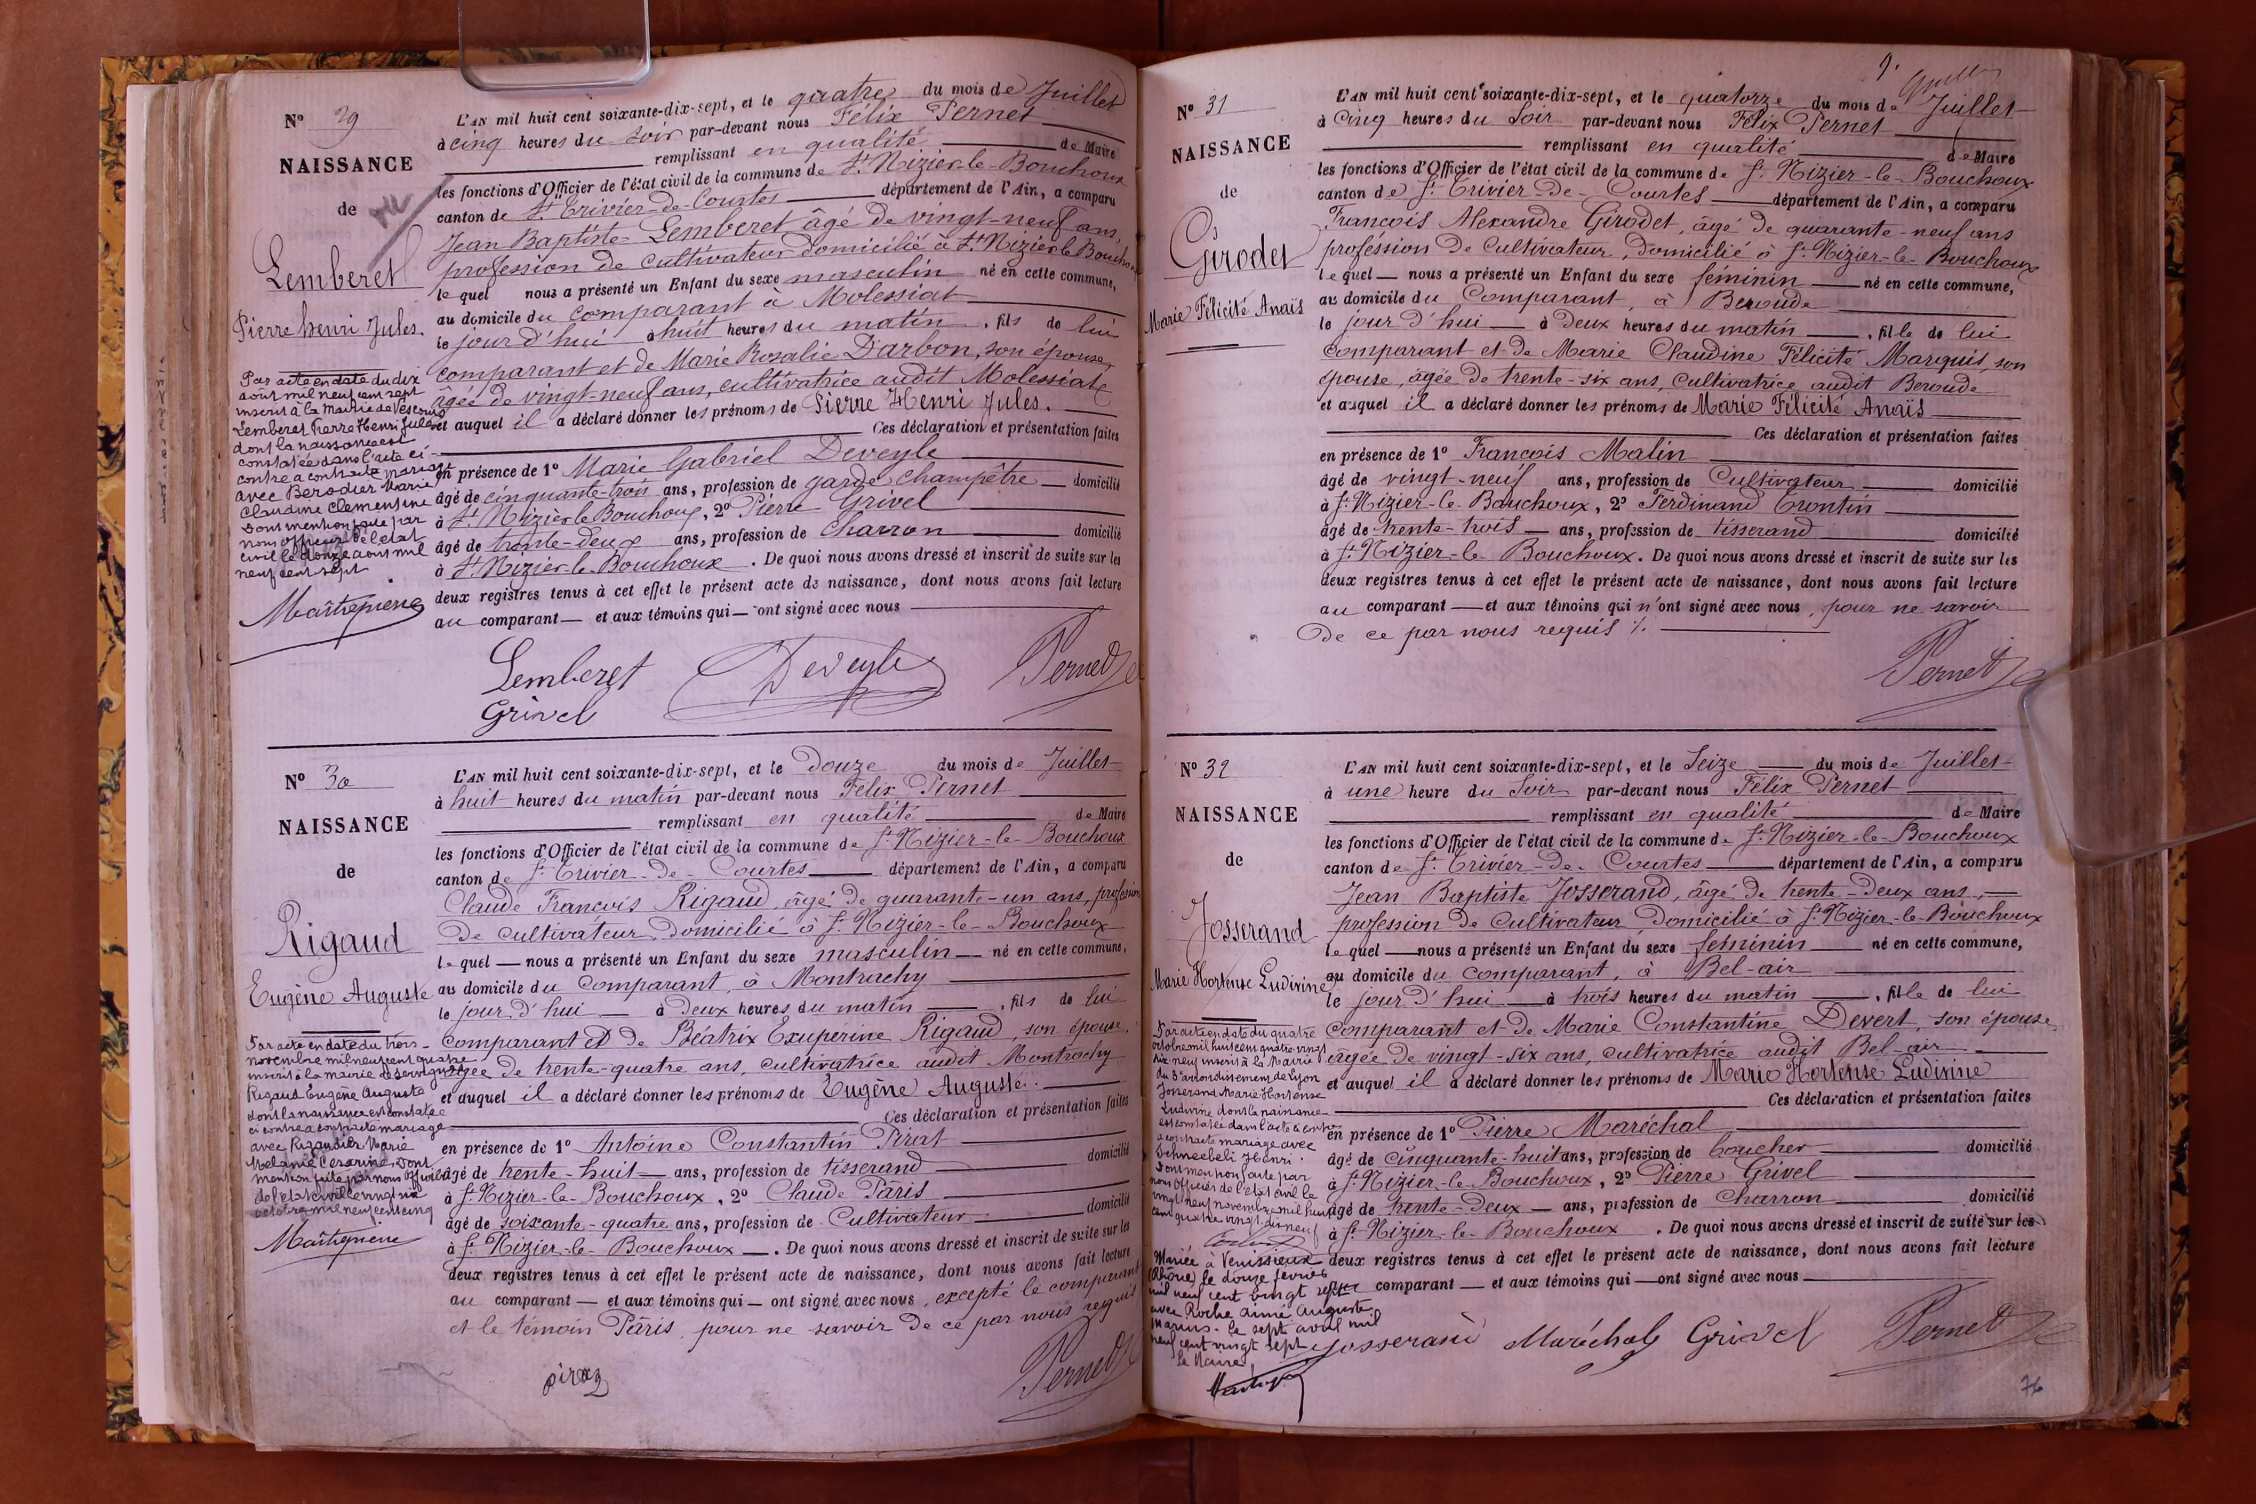 Nº 29
NAISSANCE
de
Lemberet
Pierre henri Jules.
Par acte en date du dix
aout mil neuf cent sept
inscrit à la Mairie de Vescours
Lemberet Pierre Henri Jules
dont la naissance est
constatée dans l'acte ci-
contre a contracté mariage
avec Berodier Marie
Claudine Clementine
Dont mention faite par
nous officier de l'état
civil le douze aout mil
neuf cent sept
L'AN mil huit cent soixante-dix-sept, et le quatre du mois de Juillet
à cinq heures du soir par-devant nous Félix Pernet
remplissant en qualité de Maire
les fonctions d'Officier de l'état civil de la commune de St Nizier-le-Bouchoux
canton de St Trivier-de-Courtes département de l'Ain, a comparu
Jean Baptiste Lemberet âgé de vingt-neuf ans,
profession de cultivateur domicilié à St Nizier le Bouchoux
le quel nous a présenté un Enfant du sexe masculin né en cette commune,
au domicile du comparant à Molessiat
le jour d'hui à huit heures du matin, fils de lui
comparant et de Marie Rosalie Darbon, son épouse,
âgée de vingt-neuf ans, cultivatrice audit Molessiate
et auquel il a déclaré donner les prénoms de Pierre Henri Jules.
Ces déclaration et présentation faites
en présence de 1º Marie Gabriel Deveyle
âgé de cinquante-trois ans, profession de garde champêtre domicilié
à St Nizier le Bouchoux, 2º Pierre Grivel
âgé de trente-deux ans, profession de charron domicilié
à St Nizier-le-Bouchoux. De quoi nous avons dressé et inscrit de suite sur les
deux registres tenus à cet effet le présent acte de naissance, dont nous avons fait lecture
au comparant et aux témoins qui ont signé avec nous
Lemberet Deveyle Pernet
Grivel
Nº 30
NAISSANCE
de
Rigaud
Eugène Auguste
Par acte en date du trois
novembre mil neuf cent quatre
inscrit à la mairie de Servignat
Rigaud Eugène Auguste
dont la naissance est constatée
ci contre a contracté mariage
avec Rigaudier Marie
Mélanie Césarine. Dont
mention faite par nous officier
de l'état civil le vingt six
octobre mil neuf cent cinq
L'AN mil huit cent soixante-dix-sept, et le Douze du mois de Juillet
à huit heures du matin par-devant nous Félix Pernet
remplissant en qualité de Maire
les fonctions d'Officier de l'état civil de la commune de St Nizier-le-Bouchoux
canton de St Trivier-de-Courtes département de l'Ain, a comparu
Claude François Rigaud, âgé de quarante-un ans, profession
de cultivateur domicilié à St Nizier-le-Bouchoux
le quel nous a présenté un Enfant du sexe masculin né en cette commune,
au domicile du comparant, à Montrachy
le jour d'hui à Deux heures du matin, fils de lui
comparant et de Béatrix Exupérine Rigaud, son épouse,
âgée de trente-quatre ans, cultivatrice audit Montrachy
et auquel il a déclaré donner les prénoms de Eugène Auguste.
Ces déclaration et présentation faites
en présence de 1º Antoine Constantin Pirat
âgé de trente-huit ans, profession de tisserand domicilié
à St Nizier-le-Bouchoux, 2º Claude Pâris
âgé de soixante-quatre ans, profession de Cultivateur domicilié
à St Nizier-le-Bouchoux. De quoi nous avons dressé et inscrit de suite sur les
deux registres tenus à cet effet le présent acte de naissance, dont nous avons fait lecture
au comparant et aux témoins qui ont signé avec nous, excepté le comparant
et le témoin Pâris, pour ne savoir de ce par nous requis
Pernet
9.
Nº 31
NAISSANCE
de
Girodet
Marie Félicité Anaïs
L'AN mil huit cent soixante-dix-sept, et le quatorze du mois de Juillet
à Cinq heures du Soir par-devant nous Félix Pernet
remplissant en qualité de Maire
les fonctions d'Officier de l'état civil de la commune de St Nizier-le-Bouchoux
canton de St Trivier-de-Courtes département de l'Ain, a comparu
François Alexandre Girodet, âgé de quarante-neuf ans
profession de cultivateur, domicilié à St Nizier-le-Bouchoux
le quel nous a présenté un Enfant du sexe féminin né en cette commune,
au domicile du Comparant, à Beroude
le jour d'hui à Deux heures du matin, fille de lui
comparant et de Marie Claudine Félicité Marquis, son
épouse, âgée de trente-six ans, cultivatrice audit Beroude
et auquel il a déclaré donner les prénoms de Marie Félicité Anaïs
Ces déclaration et présentation faites
en présence de 1º François Malin
âgé de vingt-neuf ans, profession de Cultivateur domicilié
à St Nizier-le-Bouchoux, 2º Ferdinand Trontin
âgé de trente-trois ans, profession de tisserand domicilié
à St Nizier-le Bouchoux. De quoi nous avons dressé et inscrit de suite sur les
deux registres tenus à cet effet le présent acte de naissance, dont nous avons fait lecture
au comparant et aux témoins qui n'ont signé avec nous, pour ne savoir
de ce par nous requis
Pernet
Nº 32
NAISSANCE
de
Josserand
Marie Hortense Ludivine
Par acte en date du quatre
octobre mil huit cent quatre vingt
dix neuf inscrit à la Mairie
du 3e arrondissement de Lyon
Josserand Marie Hortense
Ludivine dont la naissance
est constatée dans l'acte ci contre
a contracté mariage avec
Schneebeli Henri.
Dont mention faite par
nous officier de l'état civil le
vingt neuf novembre mil huit
cent quatre vingt dix neuf
Mariée à Vénissieux
(Rhône) le douze février
mil neuf cent vingt sept
avec Roche Aimé Auguste
Marius. le sept avril mil
neuf cent vingt sept
Le Maire,
L'AN mil huit cent soixante-dix-sept, et le Seize du mois de Juillet
à une heure du Soir par-devant nous Félix Pernet
remplissant en qualité de Maire
les fonctions d'Officier de l'état civil de la commune de St Nizier-le-Bouchoux
canton de St Trivier-de-Courtes département de l'Ain, a comparu
Jean Baptiste Josserand, âgé de trente-deux ans,
profession de Cultivateur domicilié à St Nizier-le-Bouchoux
le quel nous a présenté un Enfant du sexe féminin né en cette commune,
au domicile du comparant, à Bel-air
le jour d'hui à trois heures du matin, fille de lui
comparant et de Marie Constantine Devert, son épouse,
âgée de vingt-six ans, cultivatrice audit Bel-air
et auquel il a déclaré donner les prénoms de Marie Hortense Ludivine
Ces déclaration et présentation faites
en présence de 1º Pierre Maréchal
âgé de cinquante-huit ans, profession de boucher domicilié
à St Nizier-le-Bouchoux, 2º Pierre Grivel
âgé de trente-Deux ans, profession de Charron domicilié
à St Nizier-le-Bouchoux. De quoi nous avons dressé et inscrit de suite sur les
deux registres tenus à cet effet le présent acte de naissance, dont nous avons fait lecture
comparant et aux témoins qui ont signé avec nous
Josserand Maréchal Grivel Pernet
76